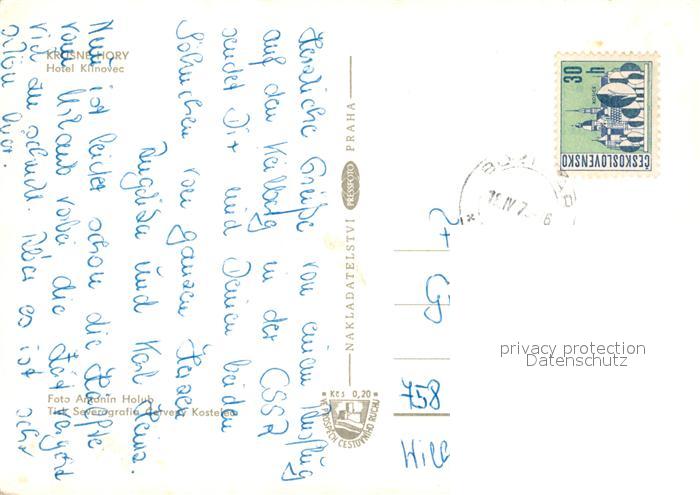 KRUŠNÉ HORY
Hotel Klínovec
Herzliche Grüße von einem Ausflug
auf den Keilberg in der CSSR
sendet Dir und Deinen beiden
Söhnchen von ganzen Herzen
Angelika und Karl Heinz.
Nun ist leider schon die Hälfte
vom Urlaub vorbei die Zeit vergeht
viel zu schnell. Aber es ist sehr
schön hier.
NAKLADATELSTVÍ PRESSFOTO PRAHA
Foto Antonín Holub
Tisk Severografia Červený Kostelec
Kčs 0,20
VE PROSPĚCH CESTOVNÍHO RUCHU
30 h
KOŠICE
ČESKOSLOVENSKO
758
privacy protection
Datenschutz